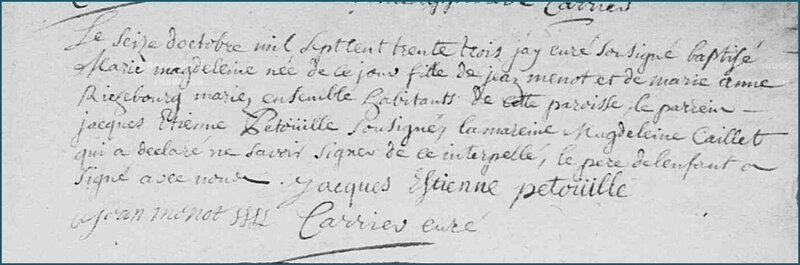 Carrier
Le seize doctobre mil sept cent trente trois jay curé sousigné baptisé
Marie magdeleine née de ce jour fille de jean menot et de marie anne
Ricebourg mariez ensemble habitants de cette paroisse le parrein
jacques Etienne Petouille sousigné, la mareine Magdeleine Caillet
qui a declaré ne savoir signer de ce interpellé, le pere delenfant a
signé avec nous jacques Estienne petouille
jean menot
Carrier curé